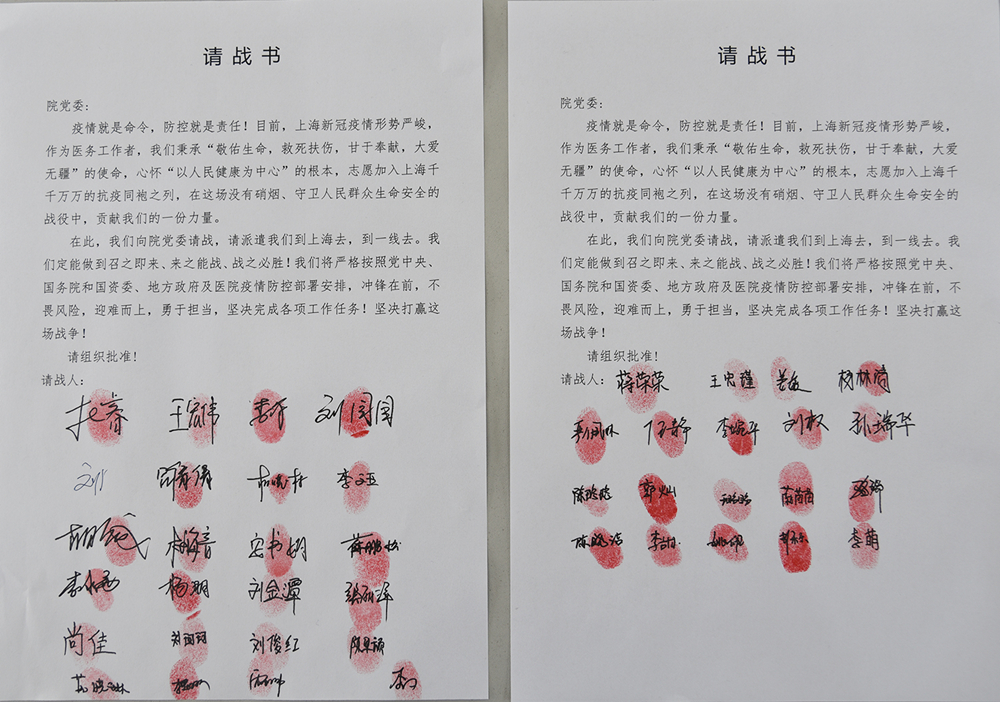 请战书
院党委:
疫情就是命令，防控就是责任！目前，上海新冠疫情形势严峻，
作为医务工作者，我们秉承“敬佑生命，救死扶伤，甘于奉献，大爱
无疆”的使命，心怀“以人民健康为中心”的根本，志愿加入上海千
千万万的抗疫同袍之列，在这场没有硝烟、守卫人民群众生命安全的
战役中，贡献我们的一份力量。
在此，我们向院党委请战，请派遣我们到上海去，到一线去。我
们定能做到召之即来、来之能战、战之必胜！我们将严格按照党中央、
国务院和国资委、地方政府及医院疫情防控部署安排，冲锋在前，不
畏风险，迎难而上，勇于担当，坚决完成各项工作任务！坚决打赢这
场战争！
请组织批准！
请战人：
王宏伟 刘闯闯
李文亚
杨明 刘金潭
尚佳 刘俊红
请战书
院党委:
疫情就是命令，防控就是责任！目前，上海新冠疫情形势严峻，
作为医务工作者，我们秉承“敬佑生命，救死扶伤，甘于奉献，大爱
无疆”的使命，心怀“以人民健康为中心”的根本，志愿加入上海千
千万万的抗疫同袍之列，在这场没有硝烟、守卫人民群众生命安全的
战役中，贡献我们的一份力量。
在此，我们向院党委请战，请派遣我们到上海去，到一线去。我
们定能做到召之即来、来之能战、战之必胜！我们将严格按照党中央、
国务院和国资委、地方政府及医院疫情防控部署安排，冲锋在前，不
畏风险，迎难而上，勇于担当，坚决完成各项工作任务！坚决打赢这
场战争！
请组织批准！
请战人： 蒋荣荣
刘权 孙瑞华
郭灿
李萌